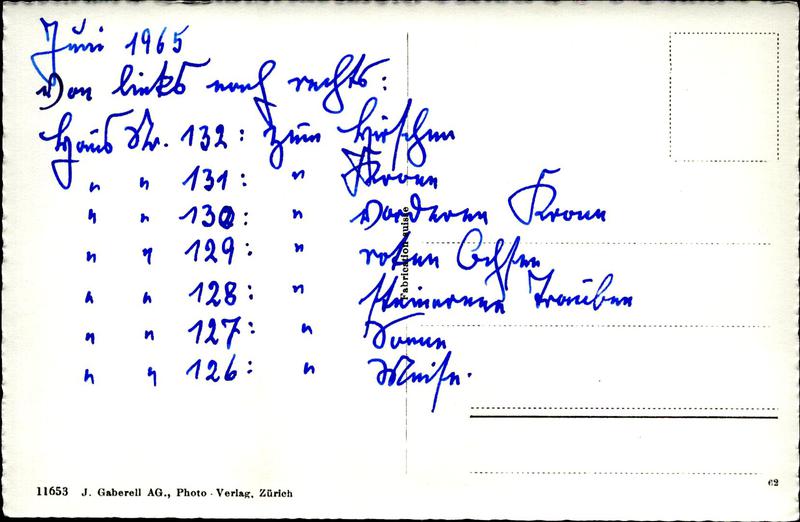 Juni 1965
Von links nach rechts:
Haus Nr. 132: Zum Hirschen
" " 131: " Krone
" " 130: " vorderen Krone
" " 129: " roten Ochsen
" " 128: " steinernen Trauben
" " 127: " Sonne
" " 126: " Meise.
Fabrication suisse
11653 J. Gaberell AG., Photo - Verlag, Zürich
62